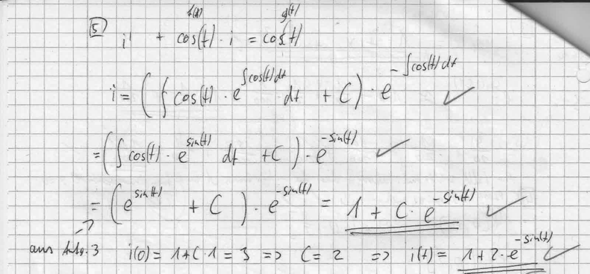 f(t) g(t)
5 i' + cos(t) · i = cos(t)
i = ( ∫ cos(t) · e^∫cos(t)dt dt + C ) · e^-∫cos(t)dt ✓
= ( ∫ cos(t) · e^sin(t) dt + C ) · e^-sin(t) ✓
= ( e^sin(t) + C ) · e^-sin(t) = 1 + C · e^-sin(t) ✓
aus 3 i(0) = 1 + C · 1 = 3 => C = 2 => i(t) = 1 + 2 · e^-sin(t) ✓